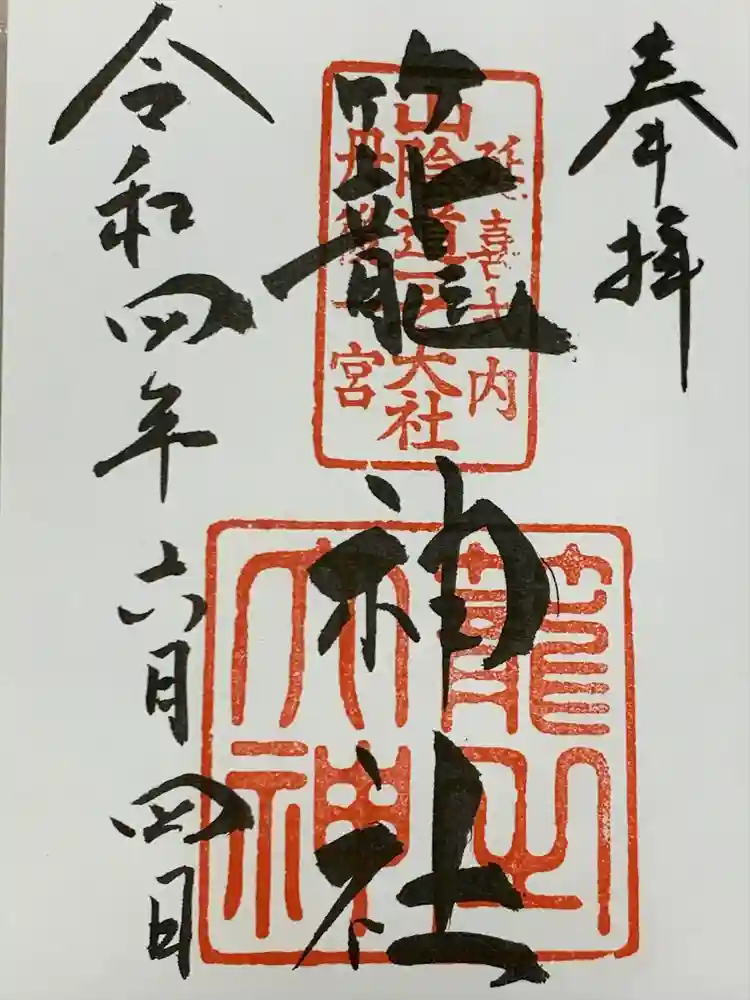 奉拝
延喜式内
山陰道大社
丹後一宮
籠神社
籠之
大神
令和四年六月四日